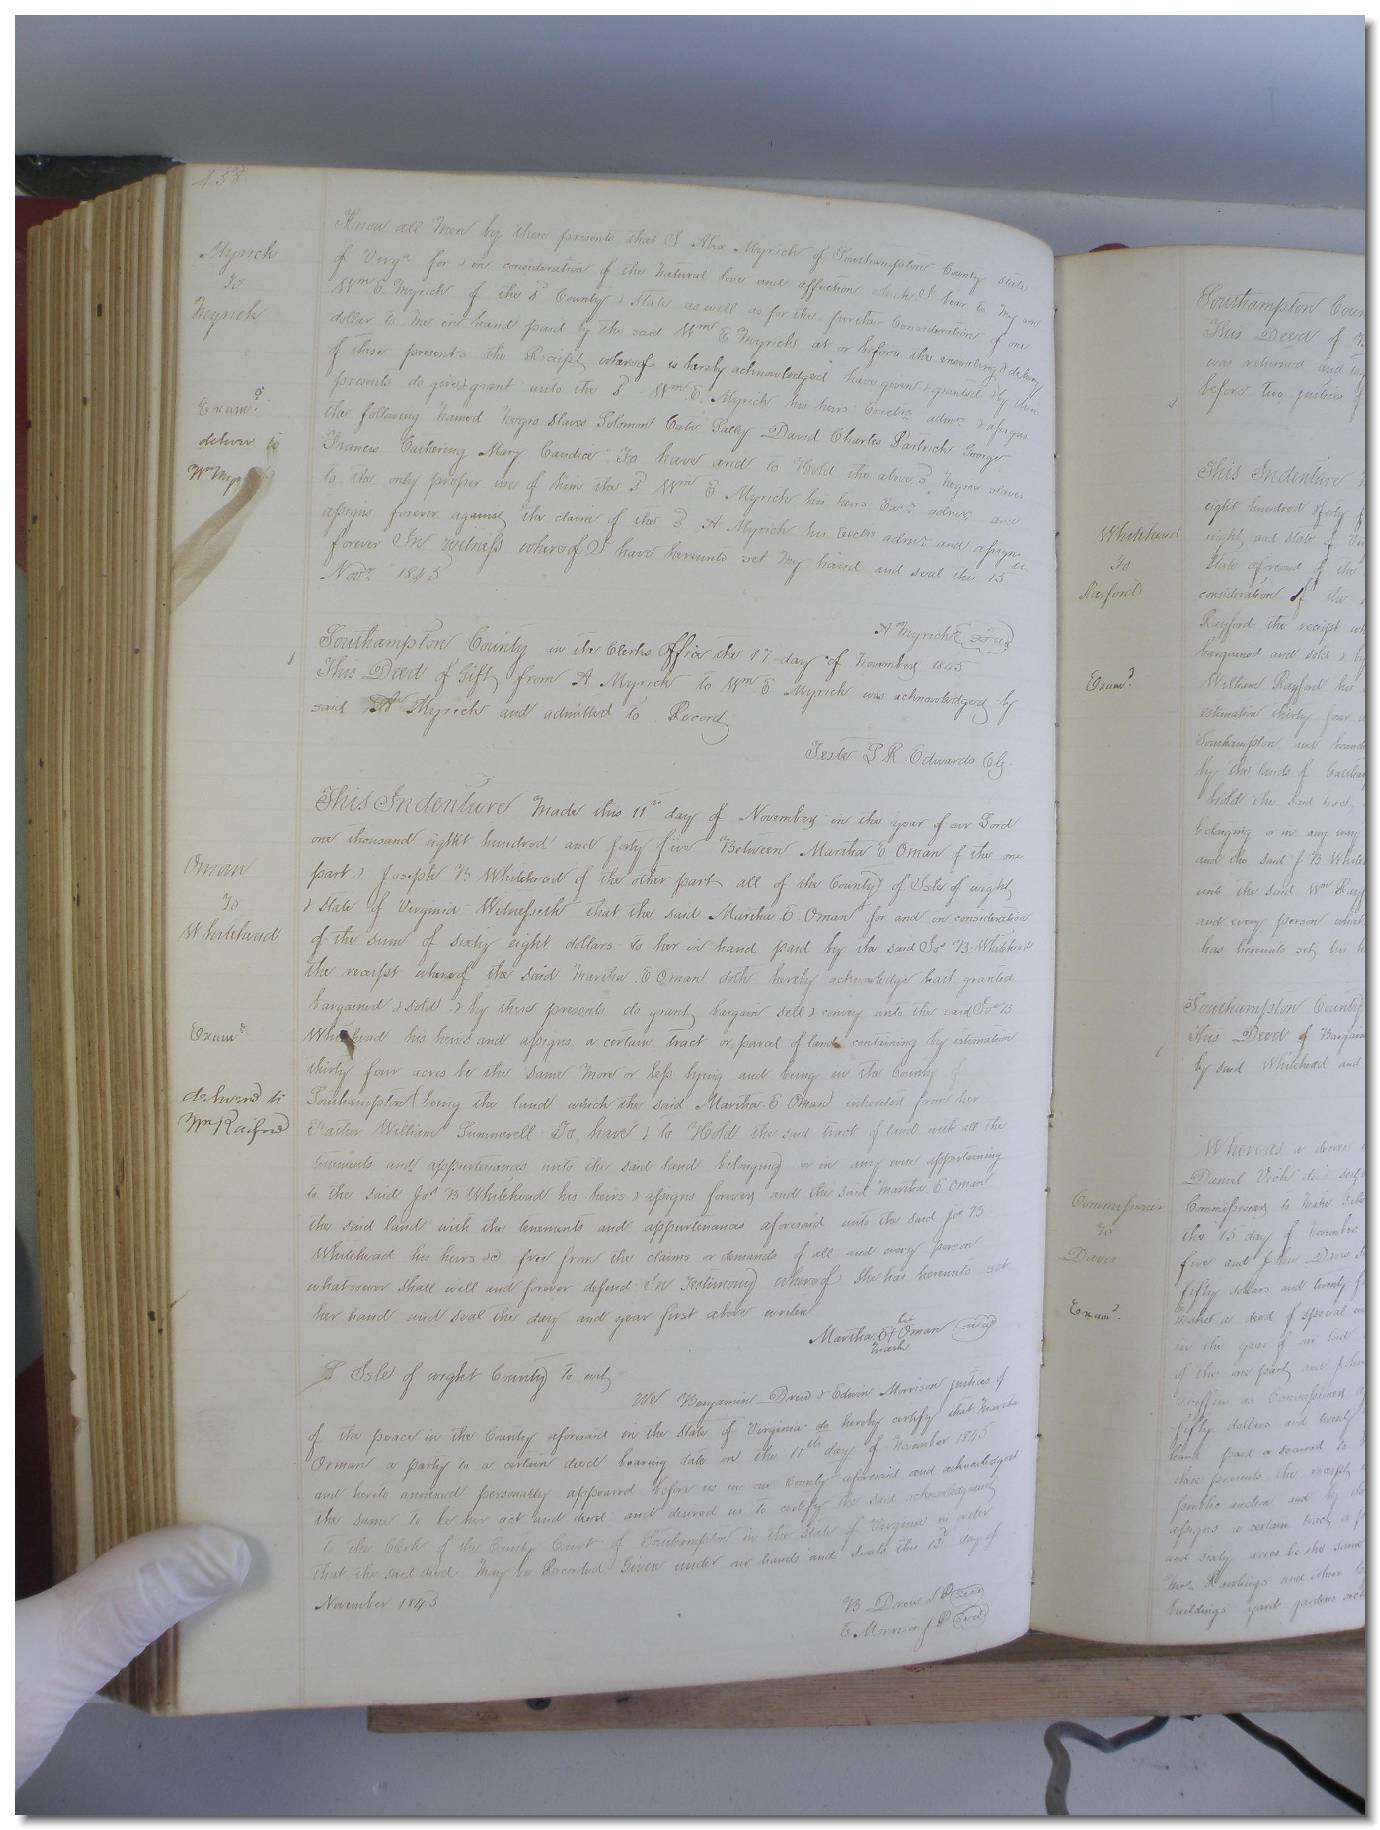 458
Myrick
To
Myrick
Exam.d
deliver to
Wm Myr
Know all Men by these presents that I Alex Myrick of Southampton County State
of Virga for & in consideration of the Natural love and affection which I bear to My son
Wm E. Myrick of the sd County & State as well as for the further Consideration of one
dollar to me in hand paid by the said Wm E Myrick at or before the ensealing & delivery
of these presents the Receipt whereof is hereby acknowledged have given & granted & by these
presents do give & grant unto the sd Wm E. Myrick his heirs Exectrs admrs & assigns
the following Named Negro Slaves Solomon Cate Sally David Charles Partrick George
Francis Mary Candice To have and to Hold the above sd Negroe slaves
to the only proper use of him the sd Wm E Myrick his heirs Exrs admrs and
assigns forever against the claim of the sd A Myrick his Exctrs admrs and assigns
forever In witness whereof I have hereunto set My hand and seal this 15th
Novr 1845
A Myrick (Seal)
Southampton County in the Clerks Office the 17 day of November 1845
This Deed of Gift from A Myrick to Wm E. Myrick was acknowledged by
said A Myrick and admitted to Record
Teste L R. Edwards Clk
Oman
To
Whitehead
Examd
delivered to
Wm Raiford
This Indenture Made this 11th day of November in the year of our Lord
one thousand eight hundred and forty five Between Martha E Oman of the one
part & Joseph B Whitehead of the other part all of the County of Isle of wight
& State of Virginia Witnesseth that the said Martha E Oman for and in consideration
of the sum of sixty eight dollars to her in hand paid by the said Jos B. Whitehead
the receipt whereof the said Martha E Oman doth hereby acknowledge hath granted
bargained & sold & by these presents do grant bargain sell & convey unto the said Jos B
Whitehead his heirs and assigns a certain tract or parcel of land containing by estimation
thirty four acres be the same More or less lying and being in the County of
Southampton (being the land which the said Martha E Oman inherited from her
Father William Summerell To have & to Hold the said tract of land with all the
tenements and appurtenances unto the said land belonging or in any wise appertaining
to the said Jos B Whitehead his heirs & assigns forever and the said Martha E Oman
the said land with the tenements and appurtenances aforesaid unto the said Jos B
Whitehead his heirs &c free from the claims or demands of all and every person
whatsoever shall will and forever defend In Testimony whereof She has hereunto set
her hand and seal the day and year first above written
her
Martha E + Oman (seal)
mark
Isle of wight County to wit
We Benjamin Drew & Edwin Morrison justices of
of the peace in the County aforesaid in the State of Virginia do hereby certify that Martha
Orman a party to a certain deed bearing date on the 11th day of November 1845
and hereto annexed personally appeared before us in our County aforesaid and acknowledged
the same to be her act and deed and desired us to certify the said acknowledgment
to the Clerk of the County Court of Southampton in the State of Virginia in order
that the said deed May be Recorded Given under our hands and seals this day of
November 1845
B Drew J P (Seal)
E. Morrison J P (Seal)
Whitehead
To
Raiford
Examd
Commissioner
to
Davis
Examd
Southampton Coun
This Deed of
was returned and
before two justices of
This Indenture
eight hundred & forty f
wight and State of Vir
State aforesaid of the
consideration of the
Rayford the receipt wh
bargained and sold & by
William Rayford his
estimation thirty four a
Southampton and bound
by the lands of
hold the said tract
belonging or in any way
and the said J B White
unto the said Wm Ray
and every person what
has hereunto set his h
Southampton County
This Deed of Bargain
by said Whitehead and
Whereas a decree
Daniel
Commissioners to Make sale
the 15 day of November
five and John Davis
fifty dollars and twenty f
Makes a deed of special
in the year of our Lord
of the one part and John
as Commissioner
fifty dollars and twenty
hand paid or secured to
these presents the receipt
public auction and by the
assigns a certain tract
and sixty acres be the same
Rawlings and others
buildings yards gardens